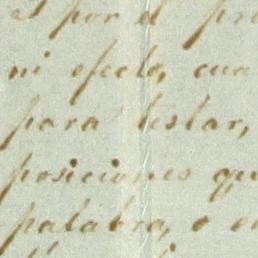 por el pre
ni efecto, cua
para testar,
posiciones qu
palabra, o e